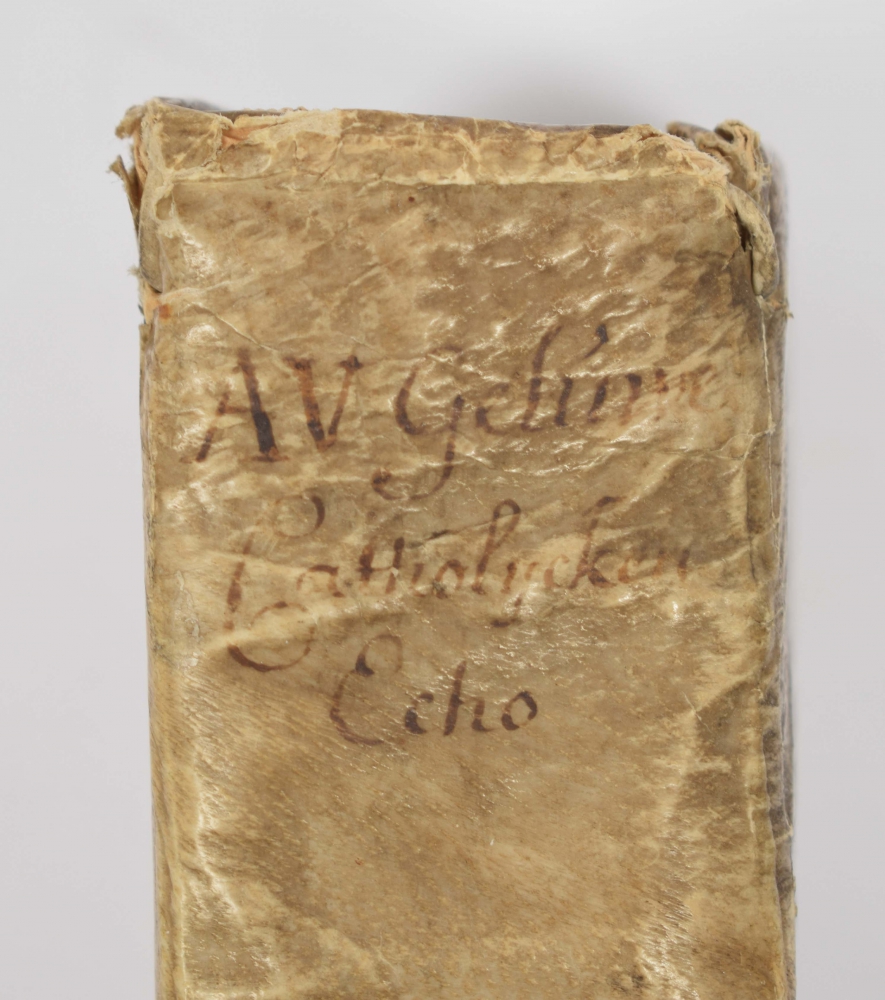 AV Gelúwe
Catholycken
Echo